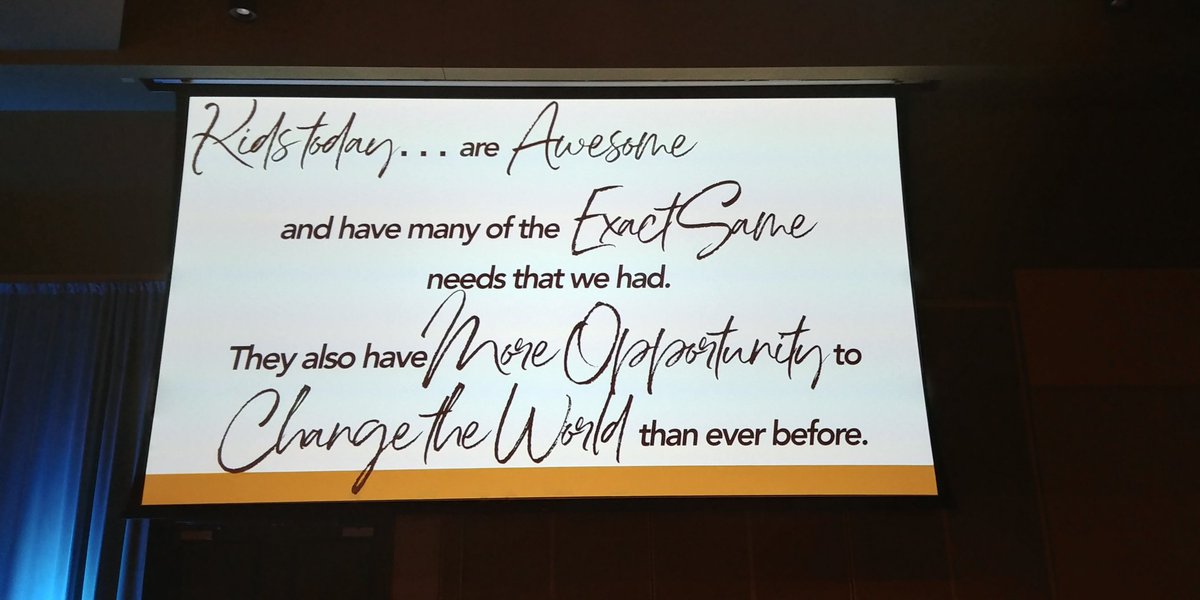 Kids today... are Awesome
and have many of the Exact Same
needs that we had.
They also have More Opportunity to
Change the World than ever before.